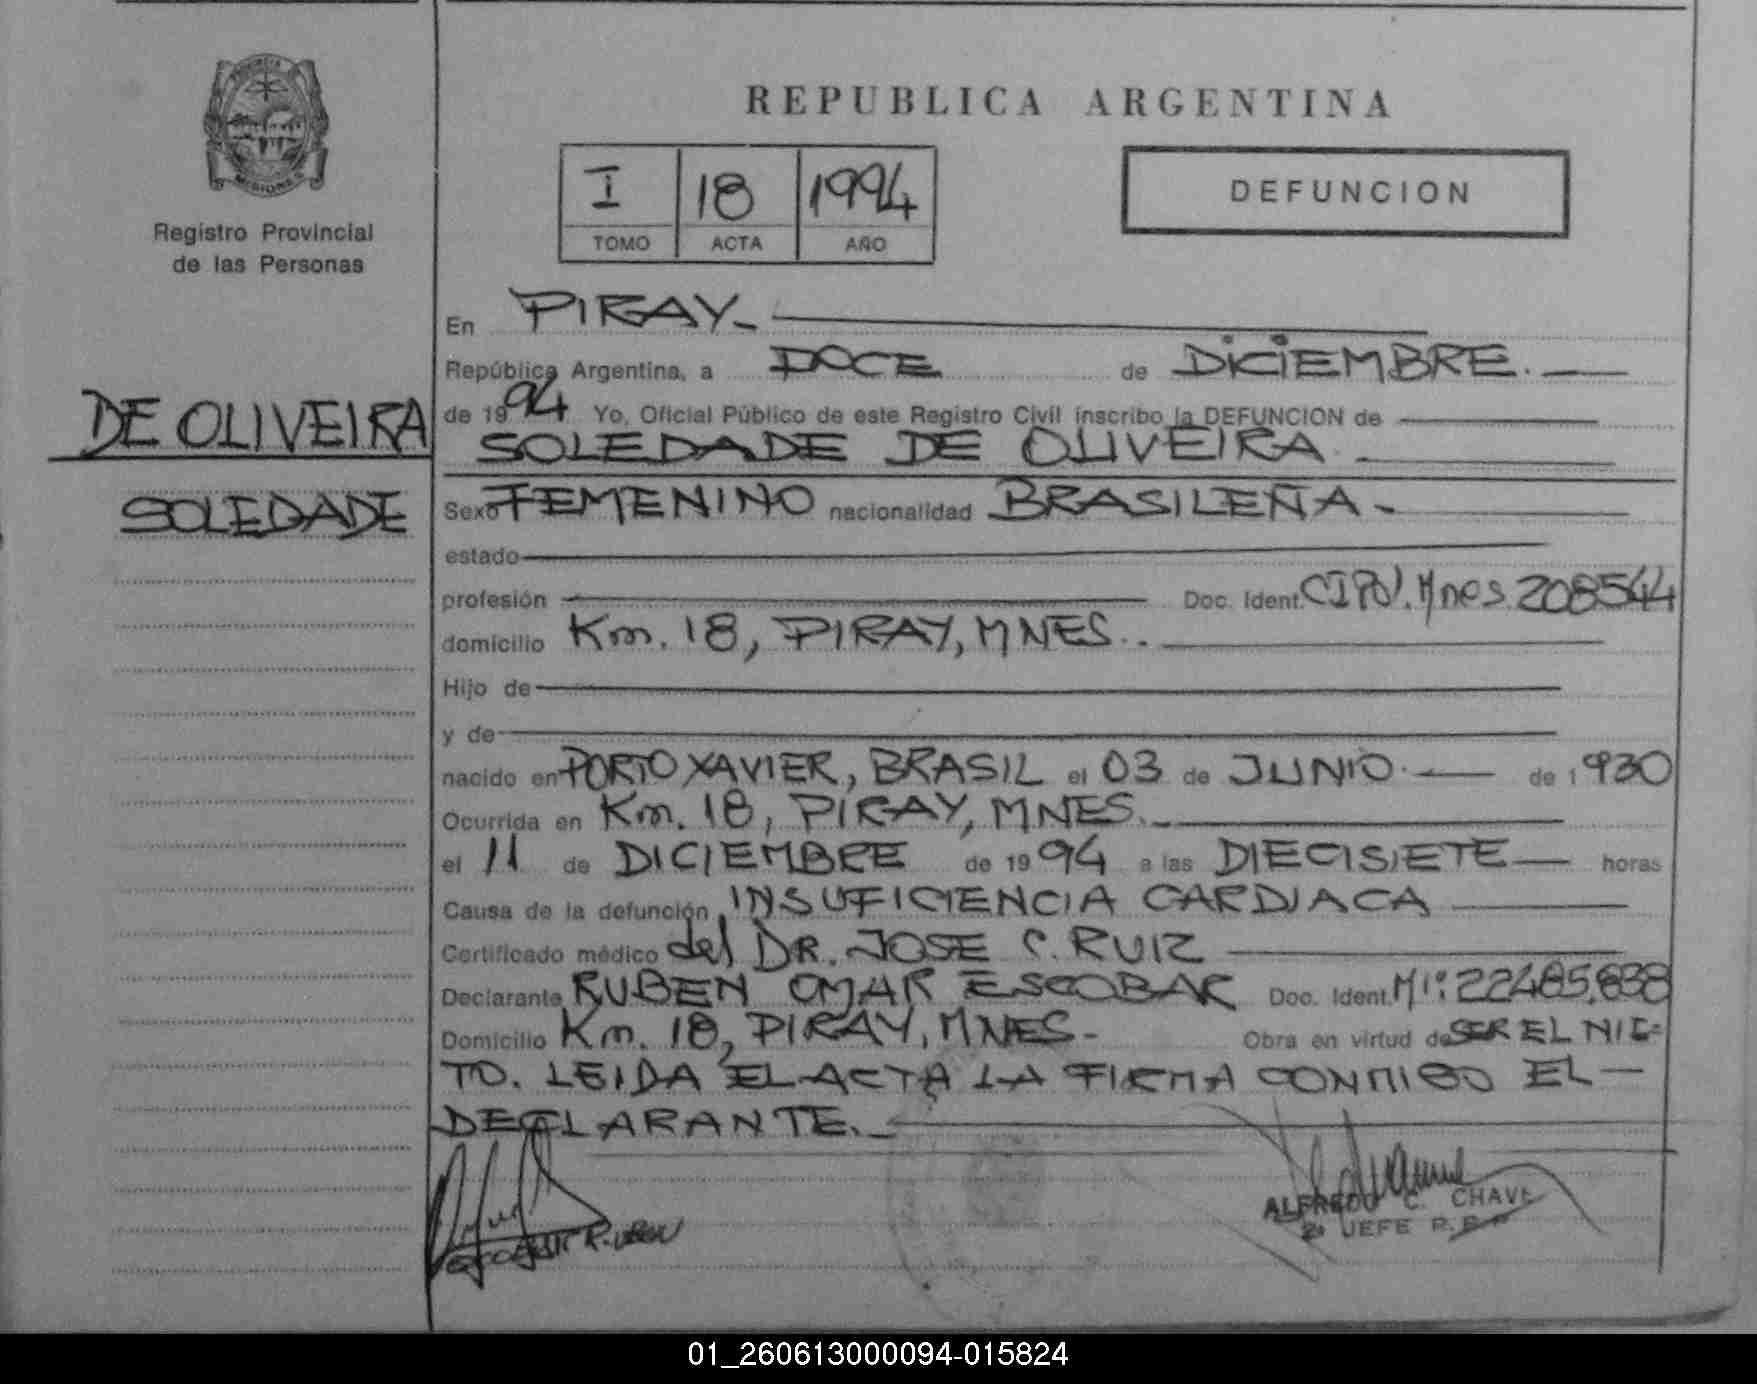 PROVINCIA
MISIONES
Registro Provincial
de las Personas
DE OLIVEIRA
SOLEDADE
REPUBLICA ARGENTINA
I 18 1994
TOMO ACTA AÑO
DEFUNCION
En PIRAY.-
República Argentina, a DOCE de DICIEMBRE.
de 1994 Yo, Oficial Público de este Registro Civil inscribo la DEFUNCION de
SOLEDADE DE OLIVEIRA
Sexo FEMENINO nacionalidad BRASILEÑA.-
estado
profesión Doc. Ident. Mnes 208544
domicilio Km. 18, PIRAY, MNES.
Hijo de
y de
nacido en PORTO XAVIER, BRASIL el 03 de JUNIO. de 1930
Ocurrida en Km. 18, PIRAY, MNES.
el 11 de DICIEMBRE de 1994 a las DIECISIETE horas
Causa de la defunción INSUFICIENCIA CARDIACA
Certificado médico del DR. JOSE C. RUIZ
Declarante RUBEN OMAR ESCOBAR Doc. Ident. MI: 22485.838
Domicilio Km. 18, PIRAY, MNES.- Obra en virtud de SER EL NIE=
TO. LEIDA EL ACTA LA FIRMA CONMIGO EL
DECLARANTE.
ALFREDO C. CHAVE
JEFE
01_260613000094-015824